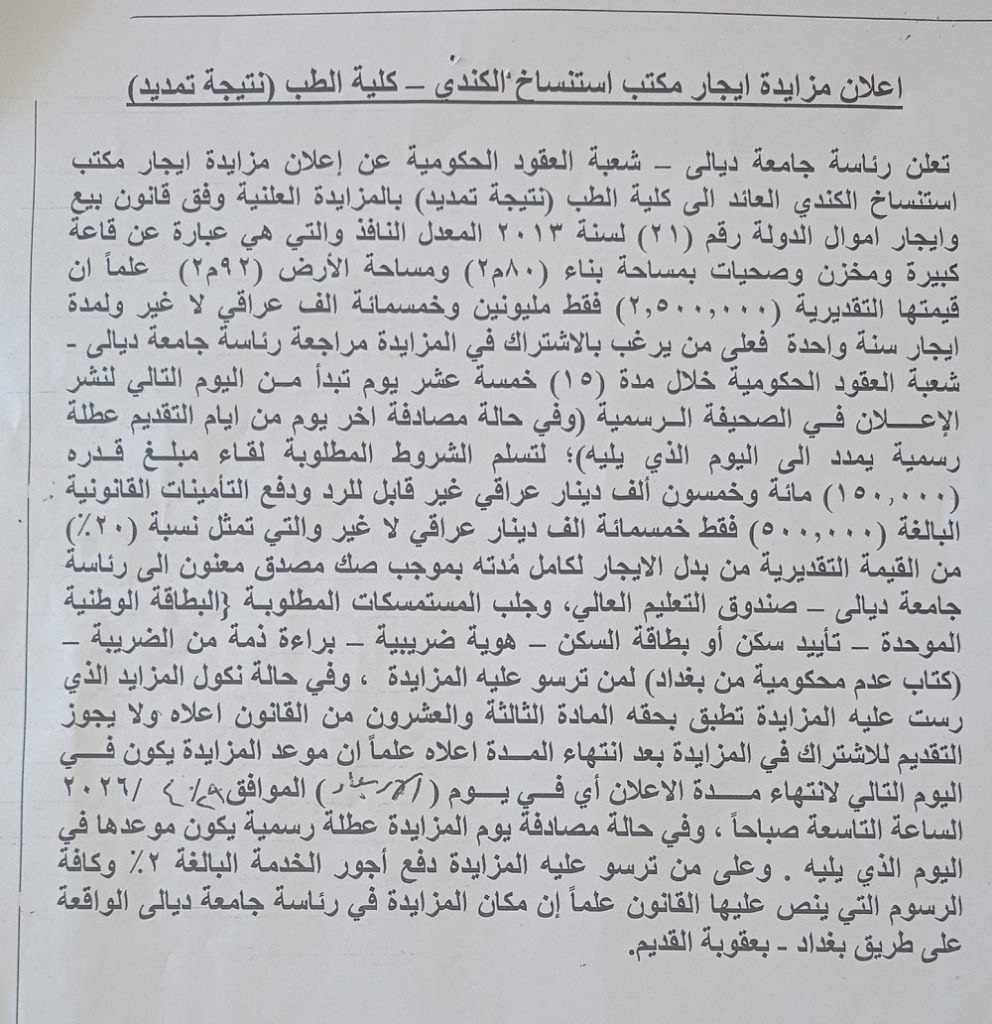 اعلان مزايدة ايجار مكتب استنساخ الكندي – كلية الطب (نتيجة تمديد)
تعلن رئاسة جامعة ديالى – شعبة العقود الحكومية عن إعلان مزايدة ايجار مكتب
استنساخ الكندي العائد الى كلية الطب (نتيجة تمديد) بالمزايدة العلنية وفق قانون بيع
وايجار اموال الدولة رقم (٢١) لسنة ٢٠١٣ المعدل النافذ والتي هي عبارة عن قاعة
كبيرة ومخزن وصحيات بمساحة بناء (٨٠م٢) ومساحة الأرض (٩٢م٢) علماً ان
قيمتها التقديرية (٢,٥٠٠,٠٠٠) فقط مليونين وخمسمائة الف عراقي لا غير ولمدة
ايجار سنة واحدة فعلى من يرغب بالاشتراك في المزايدة مراجعة رئاسة جامعة ديالى -
شعبة العقود الحكومية خلال مدة (١٥) خمسة عشر يوم تبدأ من اليوم التالي لنشر
الإعلان في الصحيفة الرسمية (وفي حالة مصادفة اخر يوم من ايام التقديم عطلة
رسمية يمدد الى اليوم الذي يليه)؛ لتسلم الشروط المطلوبة لقاء مبلغ قدره
(١٥٠,٠٠٠) مائة وخمسون ألف دينار عراقي غير قابل للرد ودفع التأمينات القانونية
البالغة (٥٠٠,٠٠٠) فقط خمسمائة الف دينار عراقي لا غير والتي تمثل نسبة (٢٠٪)
من القيمة التقديرية من بدل الايجار لكامل مُدته بموجب صك مصدق معنون الى رئاسة
جامعة ديالى – صندوق التعليم العالي، وجلب المستمسكات المطلوبة {البطاقة الوطنية
الموحدة – تأييد سكن أو بطاقة السكن – هوية ضريبية – براءة ذمة من الضريبة –
(كتاب عدم محكومية من بغداد) لمن ترسو عليه المزايدة ، وفي حالة نكول المزايد الذي
رست عليه المزايدة تطبق بحقه المادة الثالثة والعشرون من القانون اعلاه ولا يجوز
التقديم للاشتراك في المزايدة بعد انتهاء المدة اعلاه علماً ان موعد المزايدة يكون في
اليوم التالي لانتهاء مدة الاعلان أي في يوم (الاربعاء) الموافق / /٢٠٢٦
الساعة التاسعة صباحاً ، وفي حالة مصادفة يوم المزايدة عطلة رسمية يكون موعدها في
اليوم الذي يليه . وعلى من ترسو عليه المزايدة دفع أجور الخدمة البالغة ٢٪ وكافة
الرسوم التي ينص عليها القانون علماً إن مكان المزايدة في رئاسة جامعة ديالى الواقعة
على طريق بغداد - بعقوبة القديم.